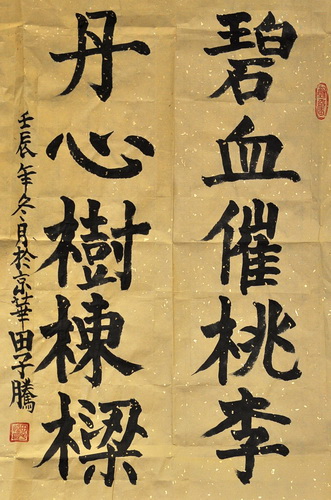 碧血催桃李
丹心樹棟樑
壬辰年冬月於京華田子騰